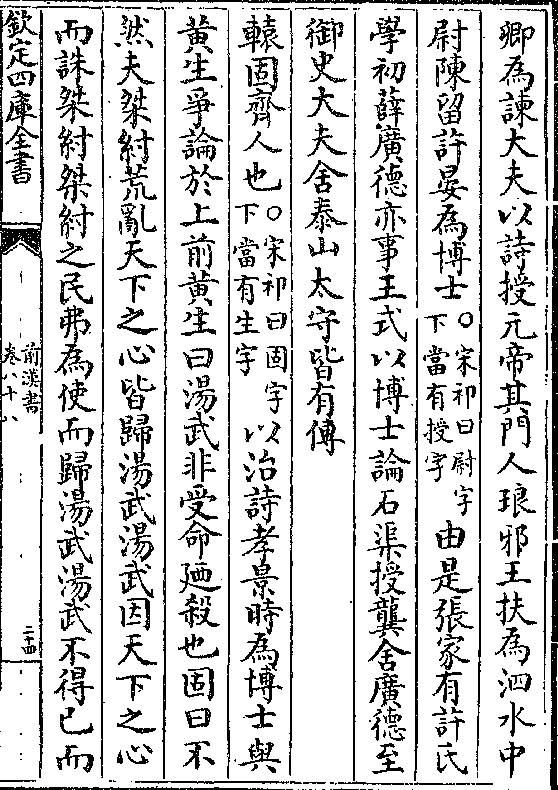 卿為諫大夫以詩授元帝其門人琅邪王扶為泗水中
尉陳留許晏為博士○宋祁曰尉字下當有授字由是張家有許氏
學初薛廣德亦事王式以博士論石渠授龔舍廣德至
御史大夫舍泰山太守皆有傳
轅固齊人也○宋祁曰固字下當有生字以治詩孝景時為博士與
黃生爭論於上前黃生曰湯武非受命廼殺也固曰不
然夫桀紂荒亂天下之心皆歸湯武湯武因天下之心
而誅桀紂桀紂之民弗為使而歸湯武湯武不得已而
欽定四庫全書
前漢書
卷八十八
二十四